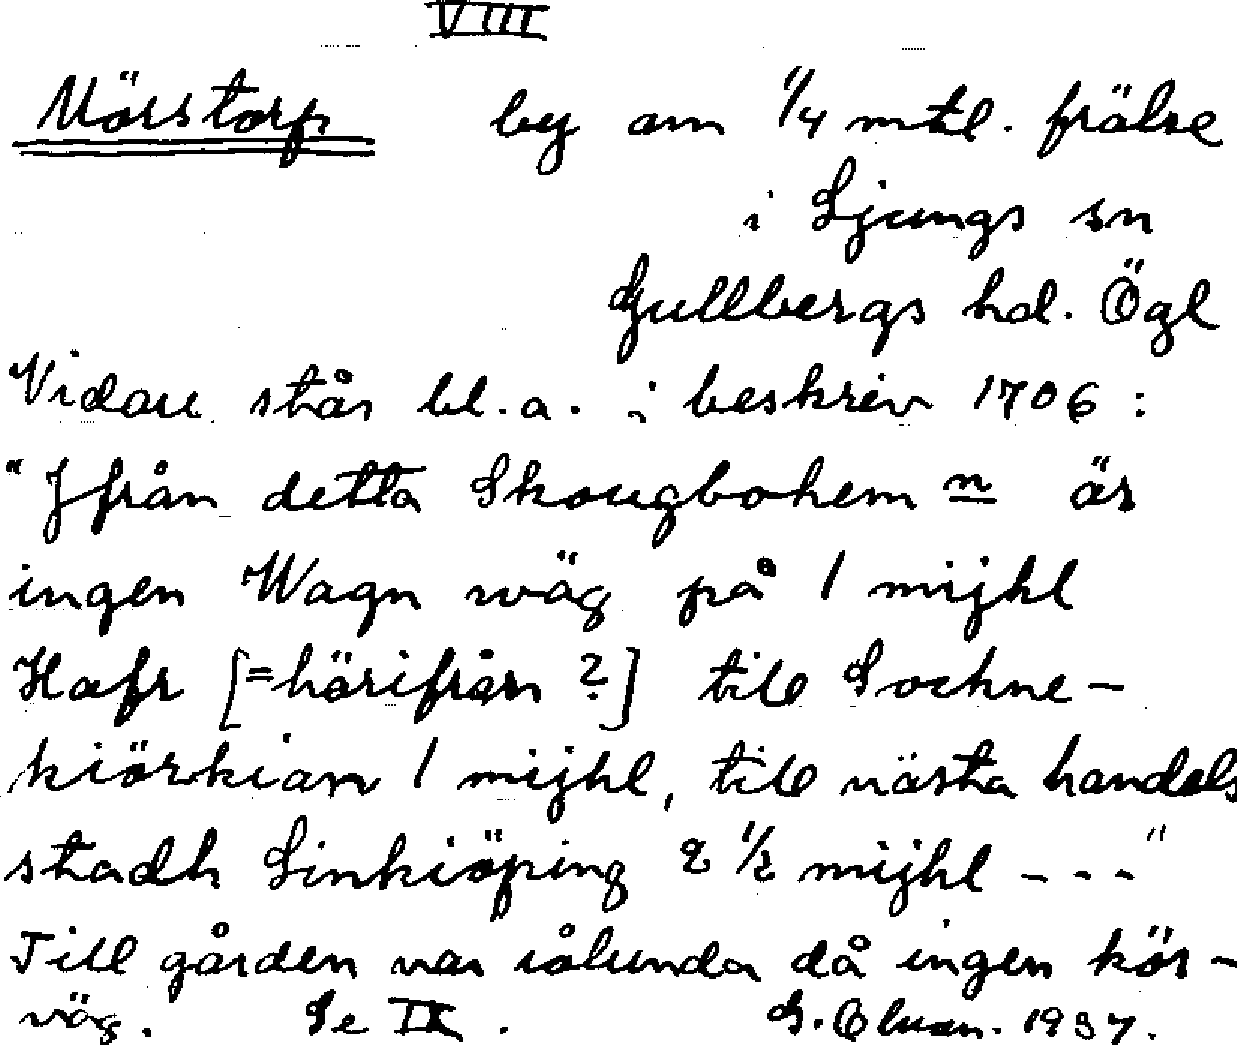 VIII
Mörstorp by om 1/4 mtl. frälse
i Ljungs sn
Gullbergs hd. Ögl
Vidare står bl.a. i beskriv 1706:
"Jfrån detta Skougbohem n är
ingen Wagn wäg på 1 mijhl
Hafr [=härifrån ?] till Sochne-
kiörkian 1 mijhl, till nästa handels
stadh Linkiöping 2 1/2 mijhl ---"
Till gården var sålunda då ingen kör-
väg. Se IX. 1937.